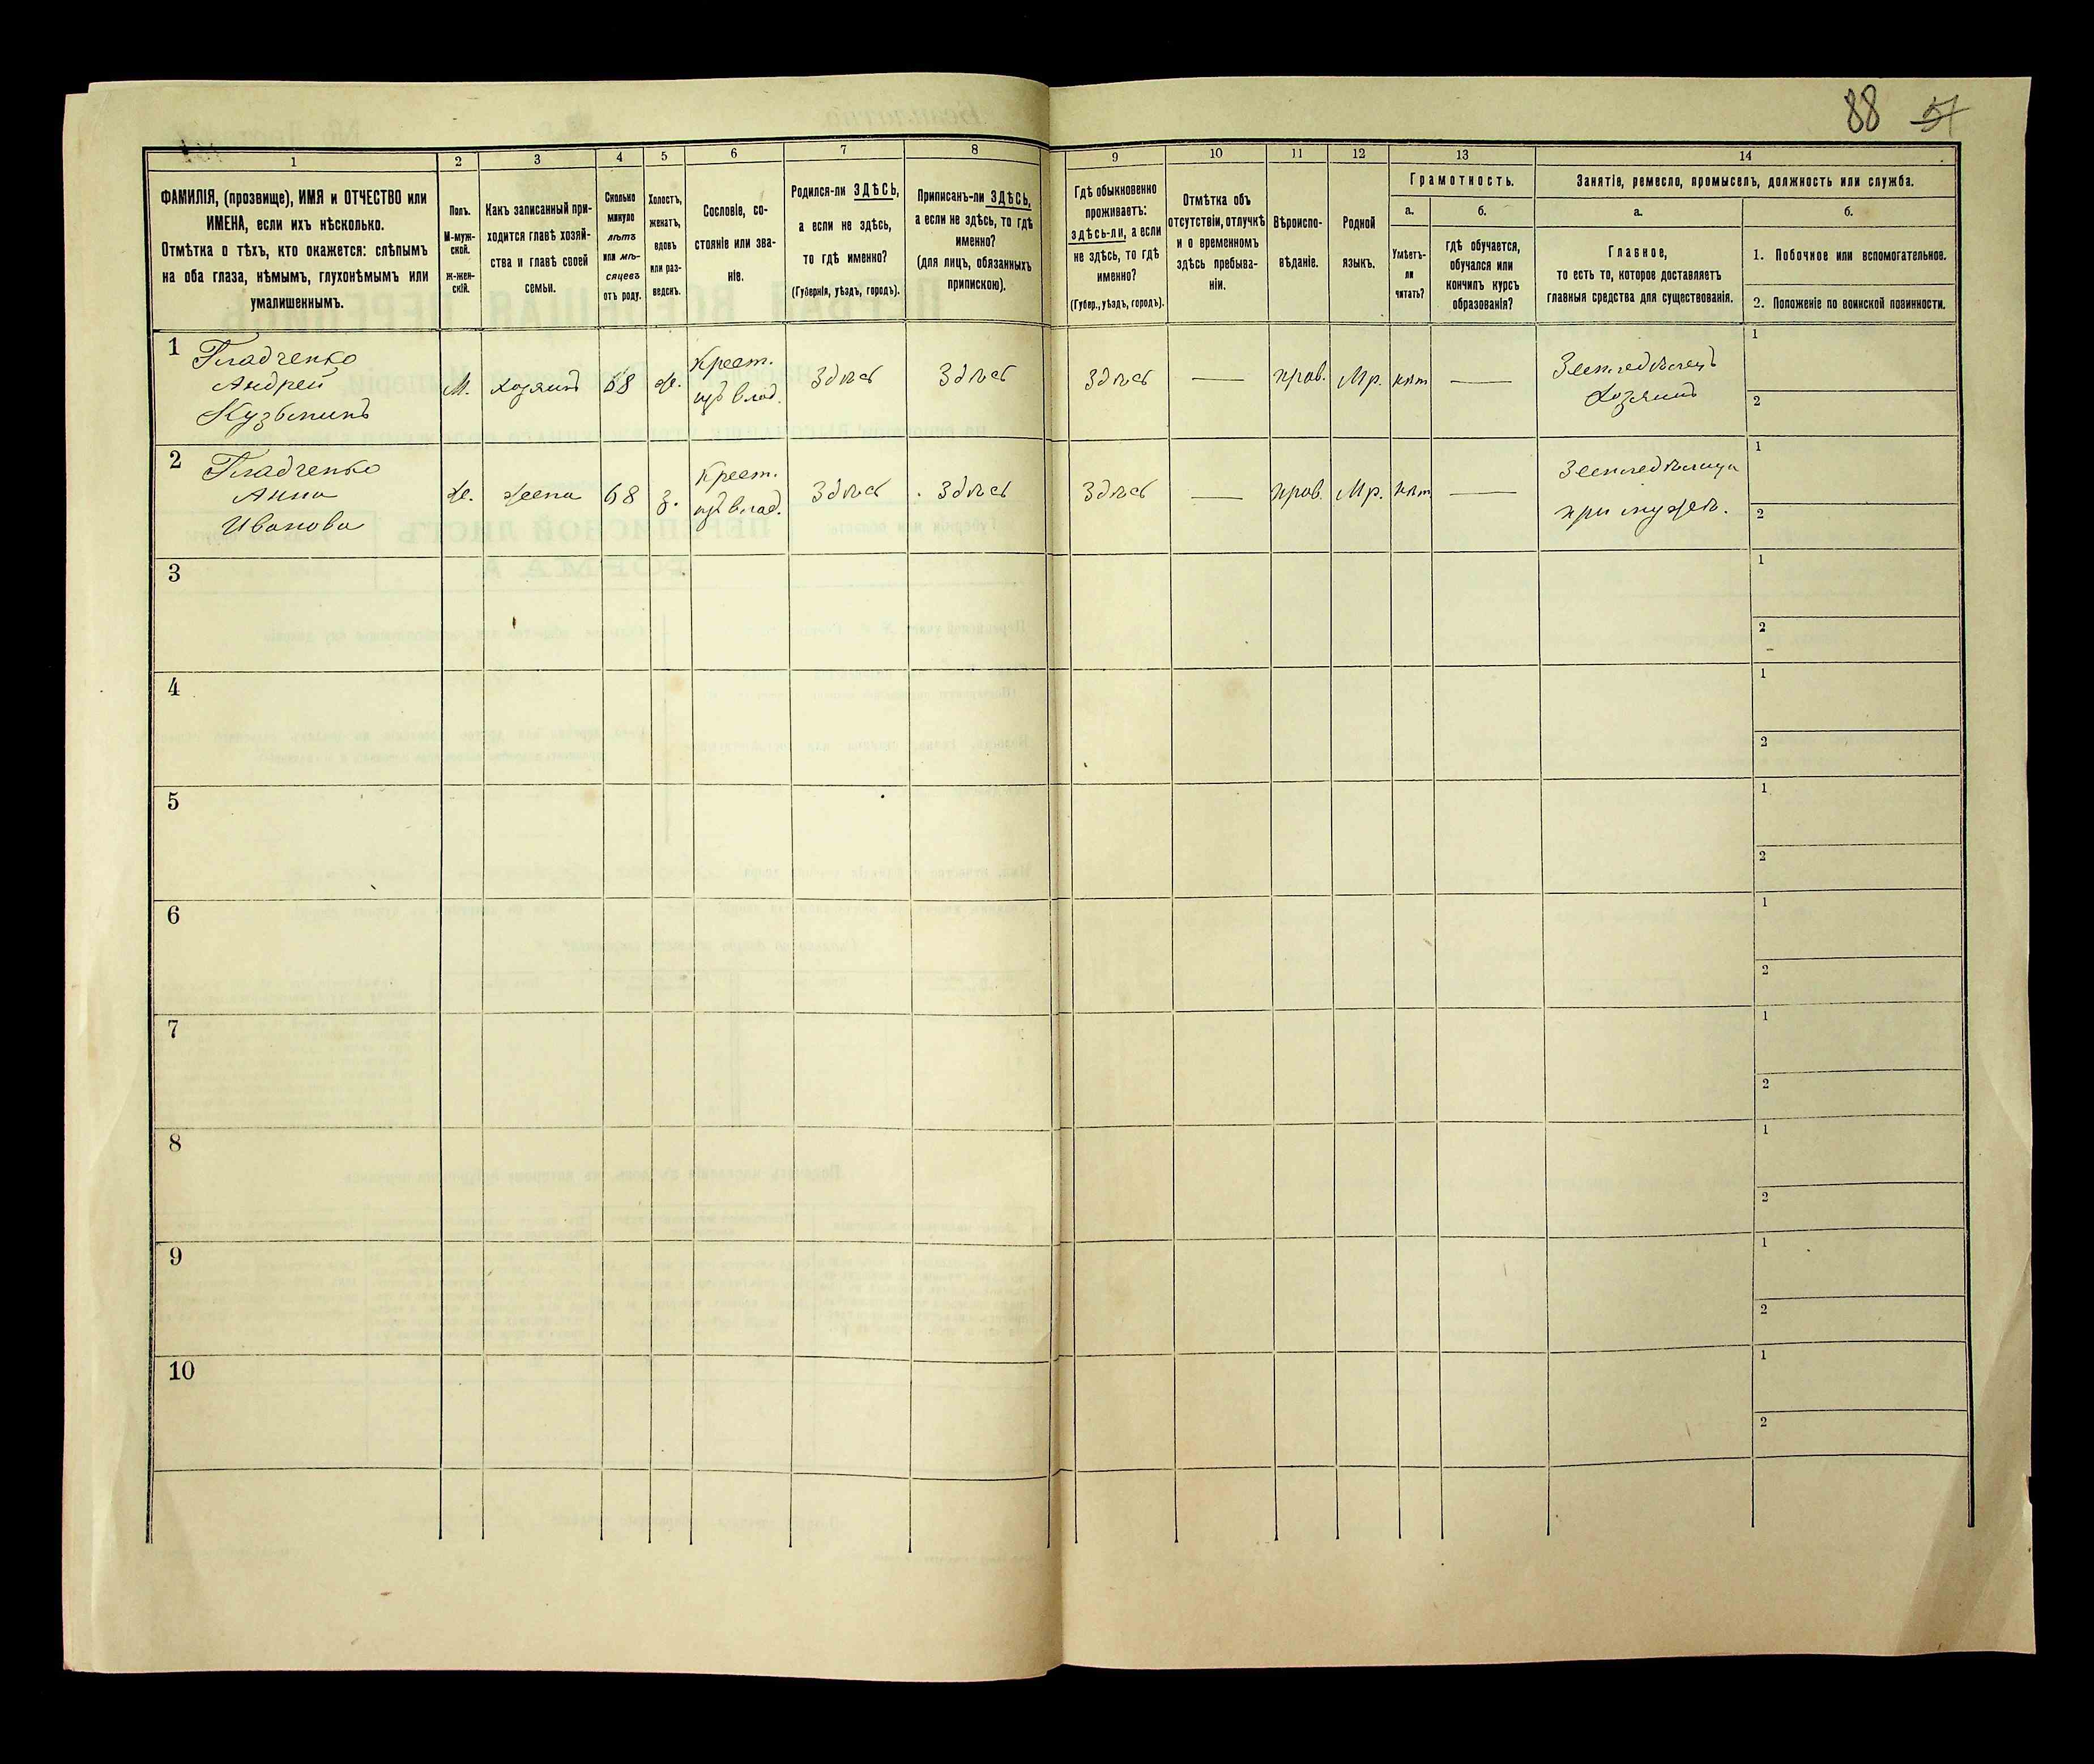 88 51
1
2
3
4
5
6
7
8
9
10
11
12
13
14
ФАМИЛІЯ, (прозвище), ИМЯ и ОТЧЕСТВО или
ИМЕНА, если ихъ нѣсколько.
Отмѣтка о тѣхъ, кто окажется: слѣпымъ
на оба глаза, нѣмымъ, глухонѣмымъ или
умалишеннымъ.
Полъ.
М-муж-
ской.
ж-жен-
скій.
Какъ записанный при-
ходится главѣ хозяй-
ства и главѣ своей
семьи.
Сколько
минуло
лѣтъ
или мѣ-
сяцевъ
отъ роду.
Холостъ,
женатъ,
вдовъ
или раз-
веденъ.
Сословіе, со-
стояніе или зва-
ніе.
Родился-ли ЗДѢСЬ,
а если не здѣсь,
то гдѣ именно?
(Губернія, уѣздъ, городъ).
Приписанъ-ли ЗДѢСЬ,
а если не здѣсь, то гдѣ
именно?
(для лицъ, обязанныхъ
припискою).
Гдѣ обыкновенно
проживаетъ:
здѣсь-ли, а если
не здѣсь, то гдѣ
именно?
(Губер., уѣздъ, городъ).
Отмѣтка объ
отсутствіи, отлучкѣ
и о временномъ
здѣсь пребыва-
ніи.
Вѣроиспо-
вѣданіе.
Родной
языкъ.
Грамотность.
а.
Умѣетъ-
ли
читать?
б.
гдѣ обучается,
обучался или
кончилъ курсъ
образованія?
Занятіе, ремесло, промыселъ, должность или служба.
а.
Главное,
то есть то, которое доставляетъ
главныя средства для существованія.
б.
1. Побочное или вспомогательное.
2. Положеніе по воинской повинности.
1
Гладченко
Андрей
Кузьминъ
М.
хозяинъ
68
ж.
Крест.
изъ влад.
Здѣсь
Здѣсь
Здѣсь
—
прав.
Мр.
нѣт
—
Земледѣлецъ
Хозяинъ
1
2
2
Гладченко
Анна
Иванова
Ж.
жена
68
з.
Крест.
изъ влад.
Здѣсь
Здѣсь
Здѣсь
—
прав.
Мр.
нѣт
—
Земледѣлица
при мужѣ.
1
2
3
1
2
4
1
2
5
1
2
6
1
2
7
1
2
8
1
2
9
1
2
10
1
2